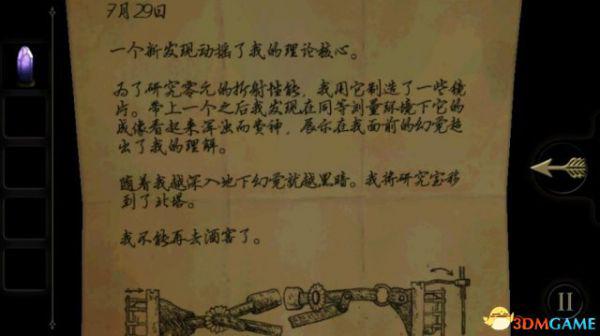 7月29日
一个新发现动摇了我的理论核心。
为了研究零元的折射性能，我用它制造了一些镜
片。带上一个之后我发现在同等测量环境下它的
成像看起来浑浊而变神，展示在我面前的幻觉超
出了我的理解。
随着我越深入地下幻觉就越黑暗。我将研究室移
到了北塔。
我不能再去酒客了。
3DMGAME